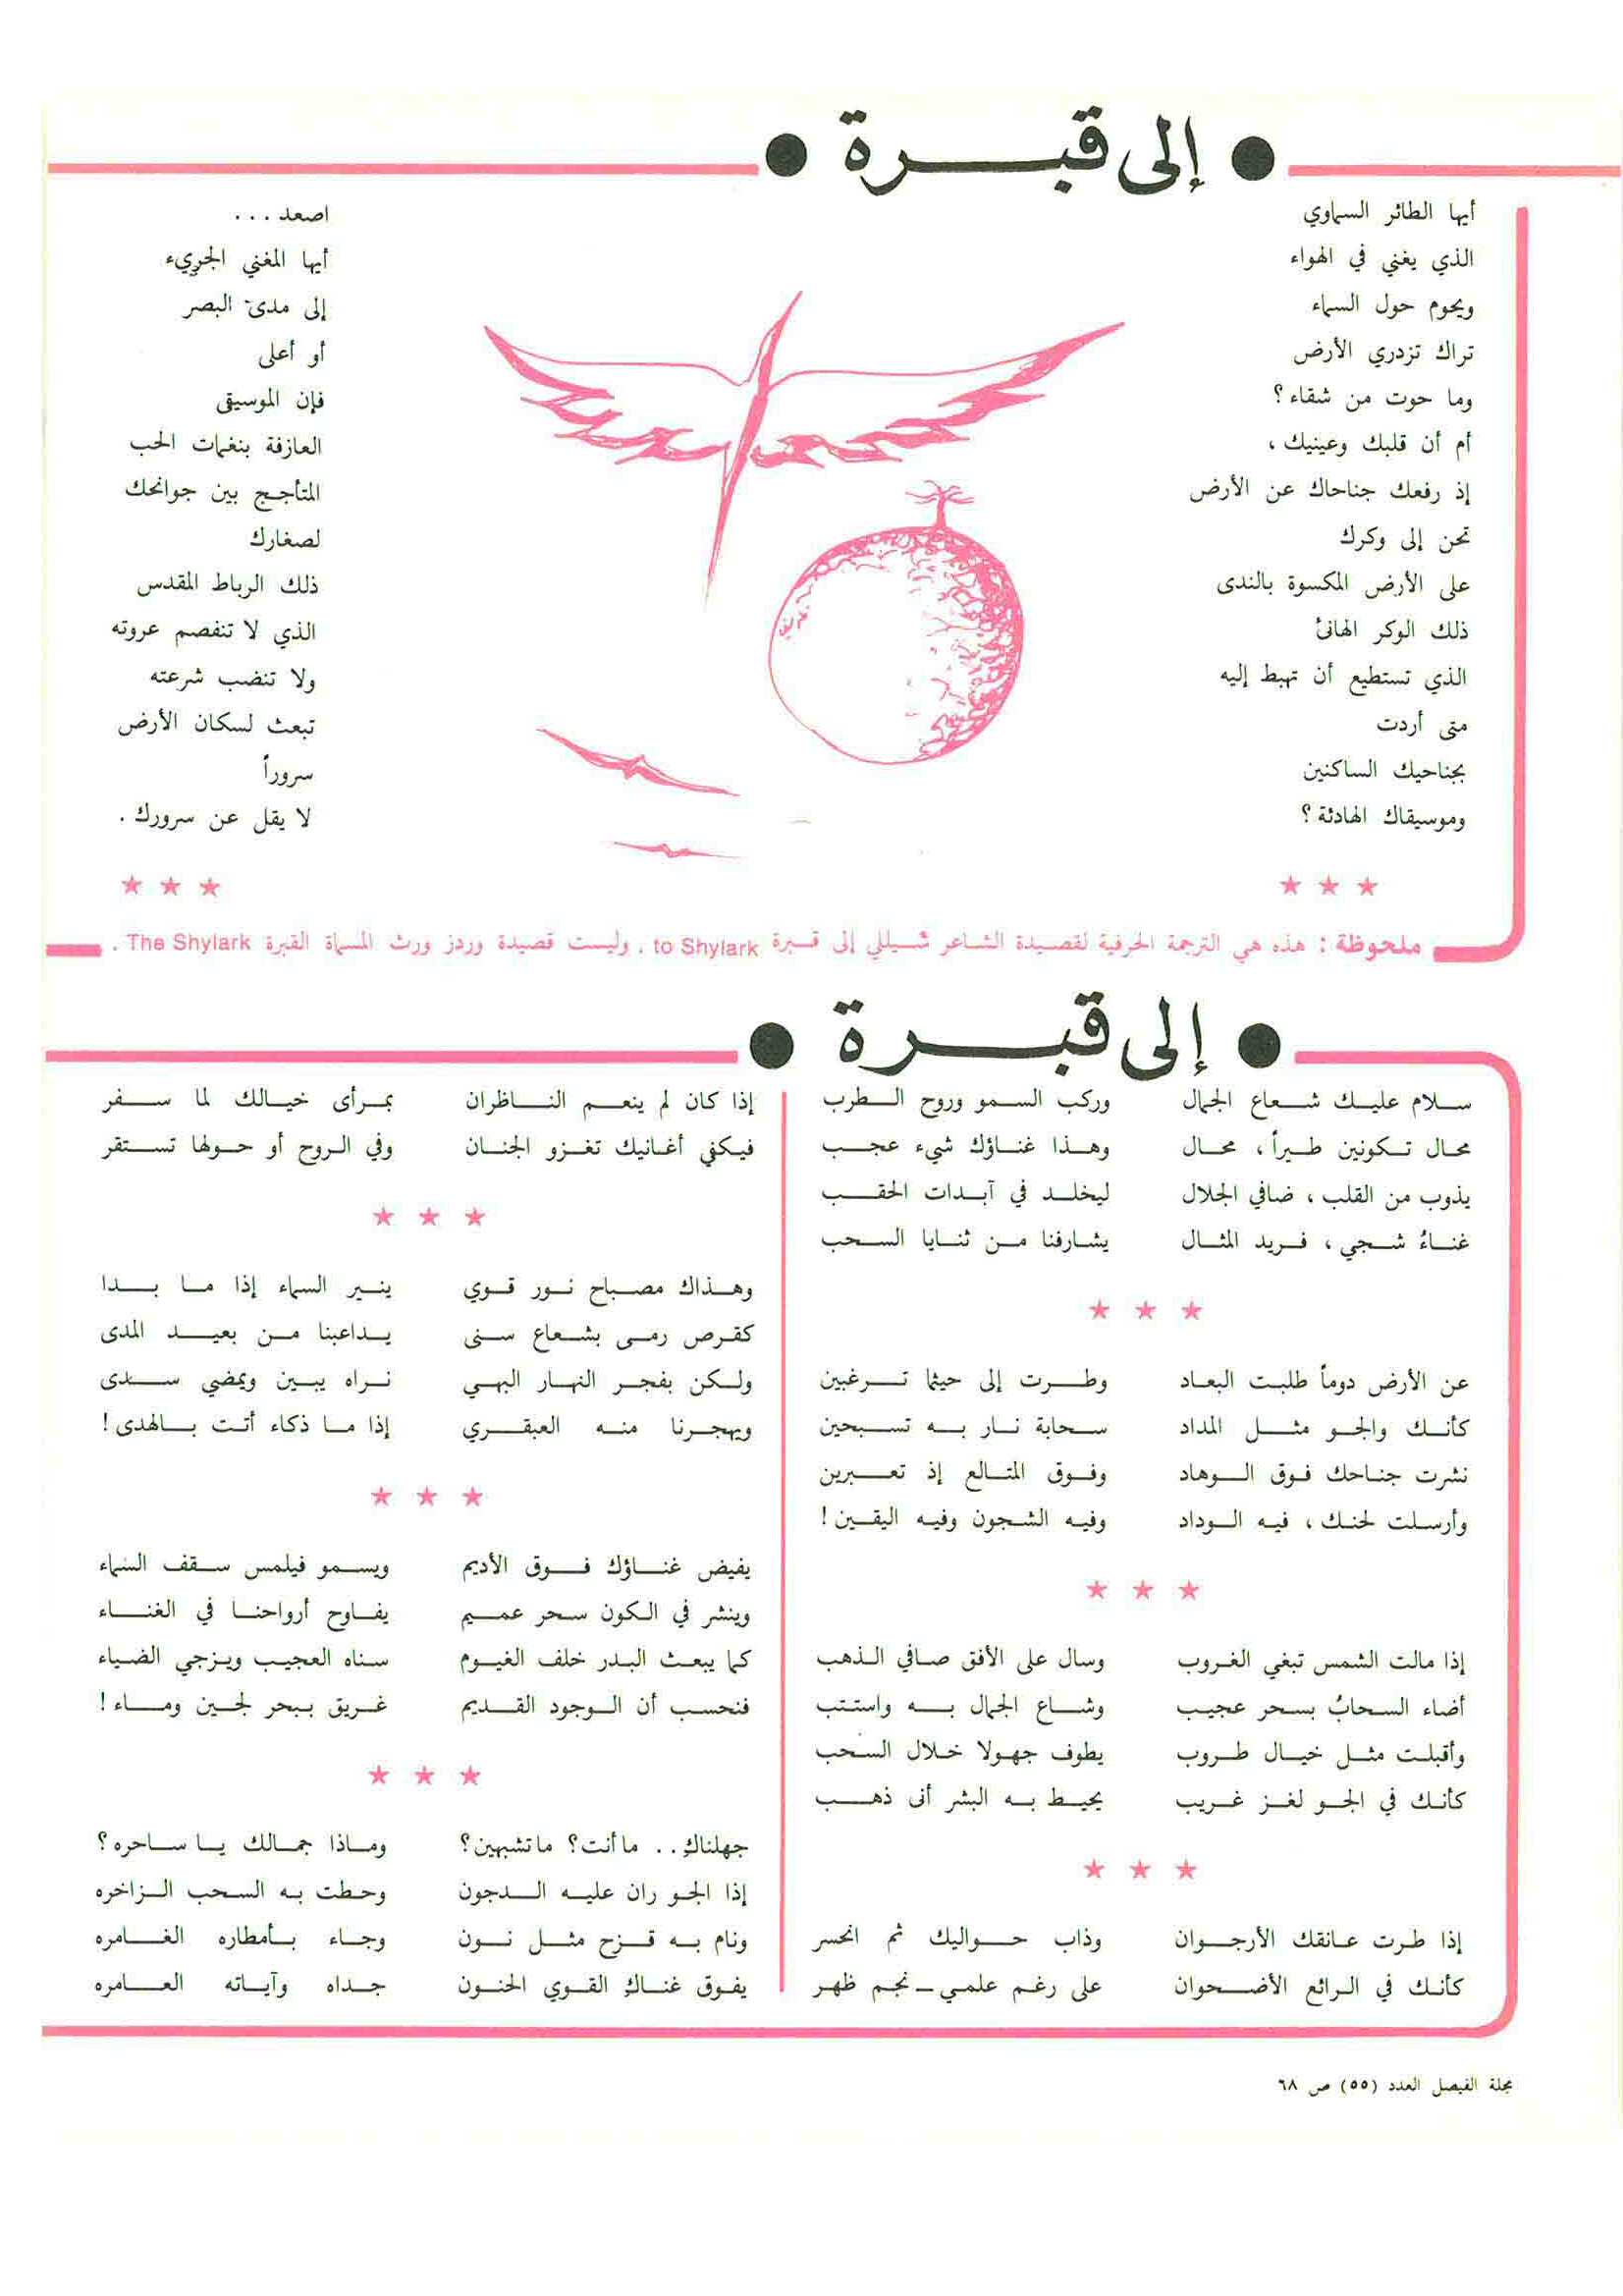 إلى قبرة
أيها الطائر السماوي
الذي يغني في الهواء
ويحوم حول السماء
تراك تزدري الأرض
وما حوت من شقاء ؟
أم أن قلبك وعينيك ،
إذ رفعك جناحاك عن الأرض
تحن إلى وكرك
على الأرض المكسوة بالندى
ذلك الوكر الهانئ
الذي تستطيع أن تهبط إليه
متى أردت
بجناحيك الساكنين
وموسيقاك الهادئة ؟
اصعد ...
أيها المغني الجريء
إلى مدى البصر
أو أعلى
فإن الموسيقى
العازفة بنغمات الحب
المتأجج بين جوانحك
لصغارك
ذلك الرباط المقدس
الذي لا تنفصم عروته
ولا تنضب شرعته
تبعث لسكان الأرض
سروراً
لا يقل عن سرورك .
ملحوظة : هذه هي الترجمة الحرفية لقصيدة الشاعر شيللي إلى قبرة to Shylark ، وليست قصيدة وردز ورث المسماة القبرة The Shylark .
إلى قبرة
سلام عليك شعاع الجمال وركب السمو وروح الطرب
محال تكونين طيراً ، محال وهذا غناؤك شيء عجب
يذوب من القلب ، ضافي الجلال ليخلد في آبدات الحقب
غناءُ شجي ، فريد المثال يشارفنا من ثنايا السحب
عن الأرض دوماً طلبت البعاد وطرت إلى حيثما ترغبين
كأنك والجو مثل المداد سحابة نار به تسبحين
نشرت جناحك فوق الوهاد وفوق المتالع إذ تعبرين
وأرسلت لحنك ، فيه الوداد وفيه الشجون وفيه اليقين !
إذا مالت الشمس تبغي الغروب وسال على الأفق صافي الذهب
أضاء السحابُ بسحر عجيب وشاع الجمال به واستتب
وأقبلت مثل خيال طروب يطوف جهولا خلال السحب
كأنك في الجو لغز غريب يحيط به البشر أنى ذهب
إذا طرت عانقك الأرجوان وذاب حواليك ثم انحسر
كأنك في الرائع الأضحوان على رغم علمي – نجم ظهر
إذا كان لم ينعم الناظران بمرأى خيالك لما سفر
فيكفي أغانيك تغزو الجنان وفي الروح أو حولها تستقر
وهذاك مصباح نور قوي ينير السماء إذا ما بدا
كقرص رمى بشعاع سنى يداعبنا من بعيد المدى
ولكن بفجر النهار البهي نراه يبين ويمضي سدى
ويهجرنا منه العبقري إذا ما ذكاء أتت بالهدى !
يفيض غناؤك فوق الأديم ويسمو فيلمس سقف السماء
وينشر في الكون سحر عميم يفاوح أرواحنا في الغناء
كما يبعث البدر خلف الغيوم سناه العجيب ويزجي الضياء
فنحسب أن الوجود القديم غريق ببحر لجين وماء !
جهلناكِ .. ما أنت ؟ ما تشبهين ؟ وماذا جمالك يا ساحره ؟
إذا الجو ران عليه الدجون وحطت به السحب الزاخره
ونام به قزح مثل نون وجاء بأمطاره الغامره
يفوق غناكِ القوي الحنون جداه وآياته العامره
مجلة الفيصل العدد (٥٥) ص ٦٨